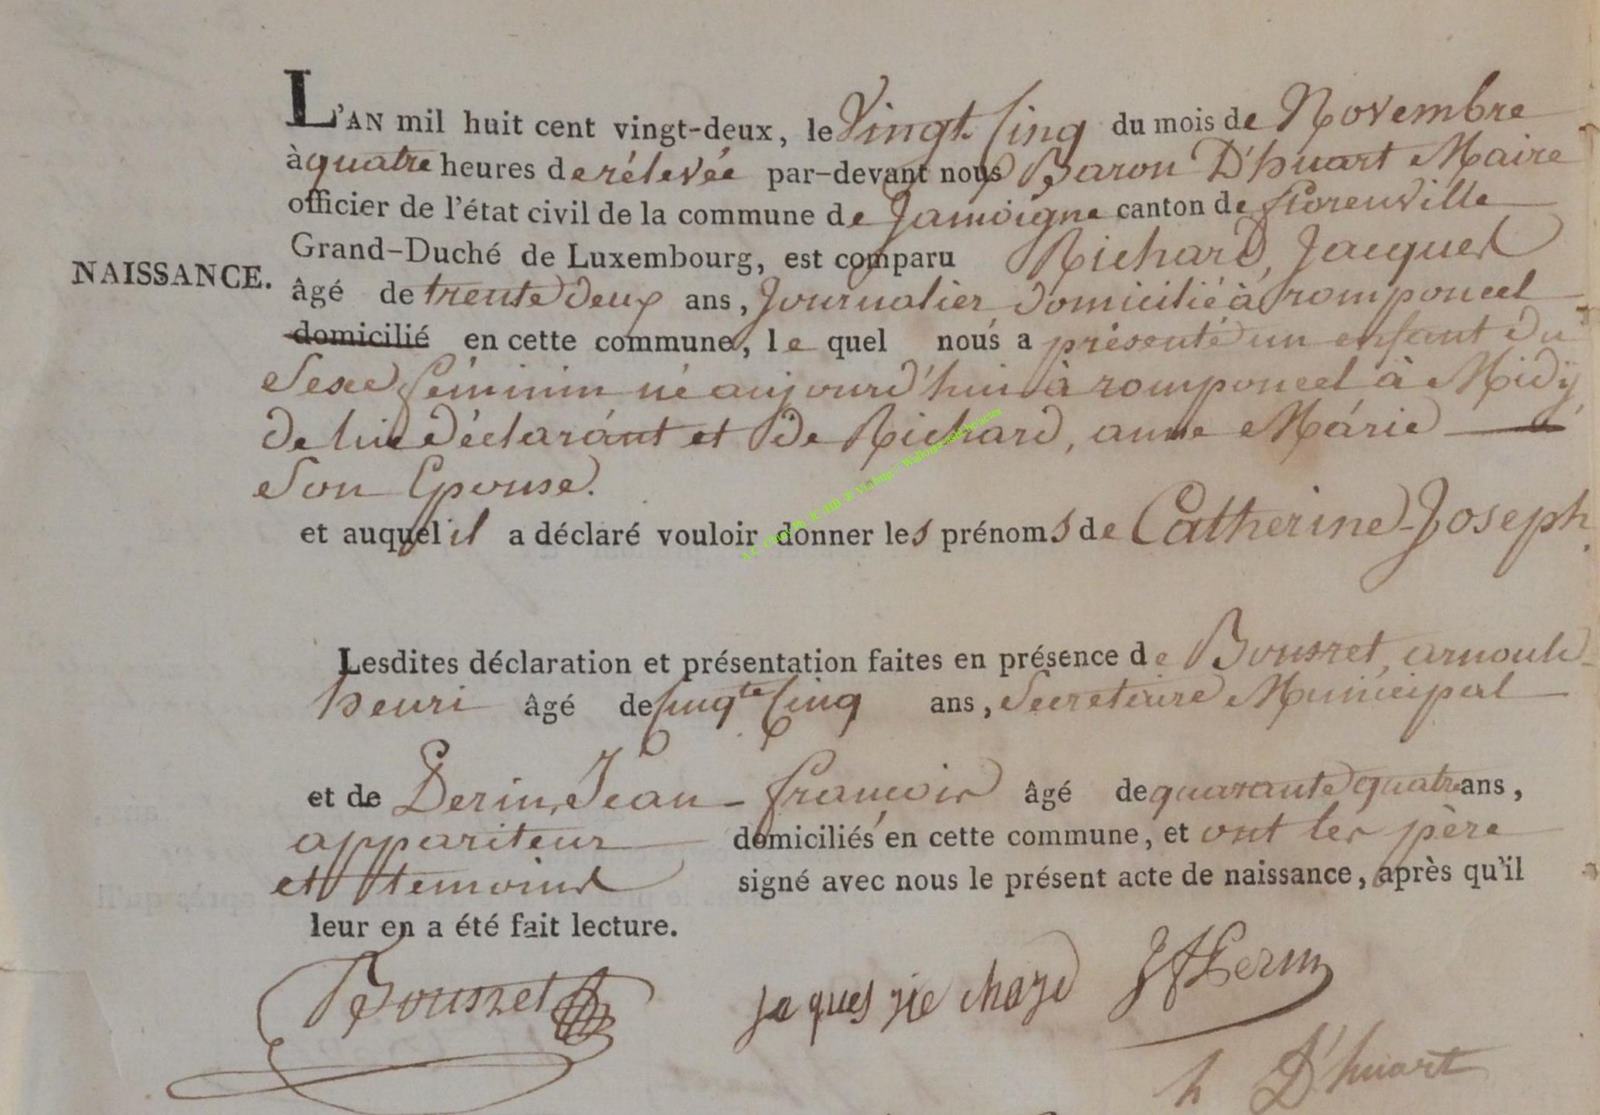 L'AN mil huit cent vingt-deux, le Vingt Cinq du mois de Novembre
à quatre heures de rélevée par-devant nous Baron D'huart Maire
officier de l'état civil de la commune de Jamoigne canton de florenville
Grand-Duché de Luxembourg, est comparu Richard, Jacques
NAISSANCE.
âgé de trente deux ans, Journalier domicilié à romponcel
domicilié en cette commune, le quel nous a présenté un enfant du
Sexe féminin né aujourd'hui à romponcel à Midÿ
de lui déclarant et de Richard, anne Márie
Son Epouse.
et auquel il a déclaré vouloir donner les prénoms de Catherine-Joseph.
Lesdites déclaration et présentation faites en présence de Bousret, arnould
henri âgé de Cinqte Cinq ans, Secretaire Municipal
et de Derin, Jean-françois âgé de quarante quatre ans,
appariteur domiciliés en cette commune, et ont les père
et temoins signé avec nous le présent acte de naissance, après qu'il
leur en a été fait lecture.
Bousret jaques rie chard JfDerin
h D'huart